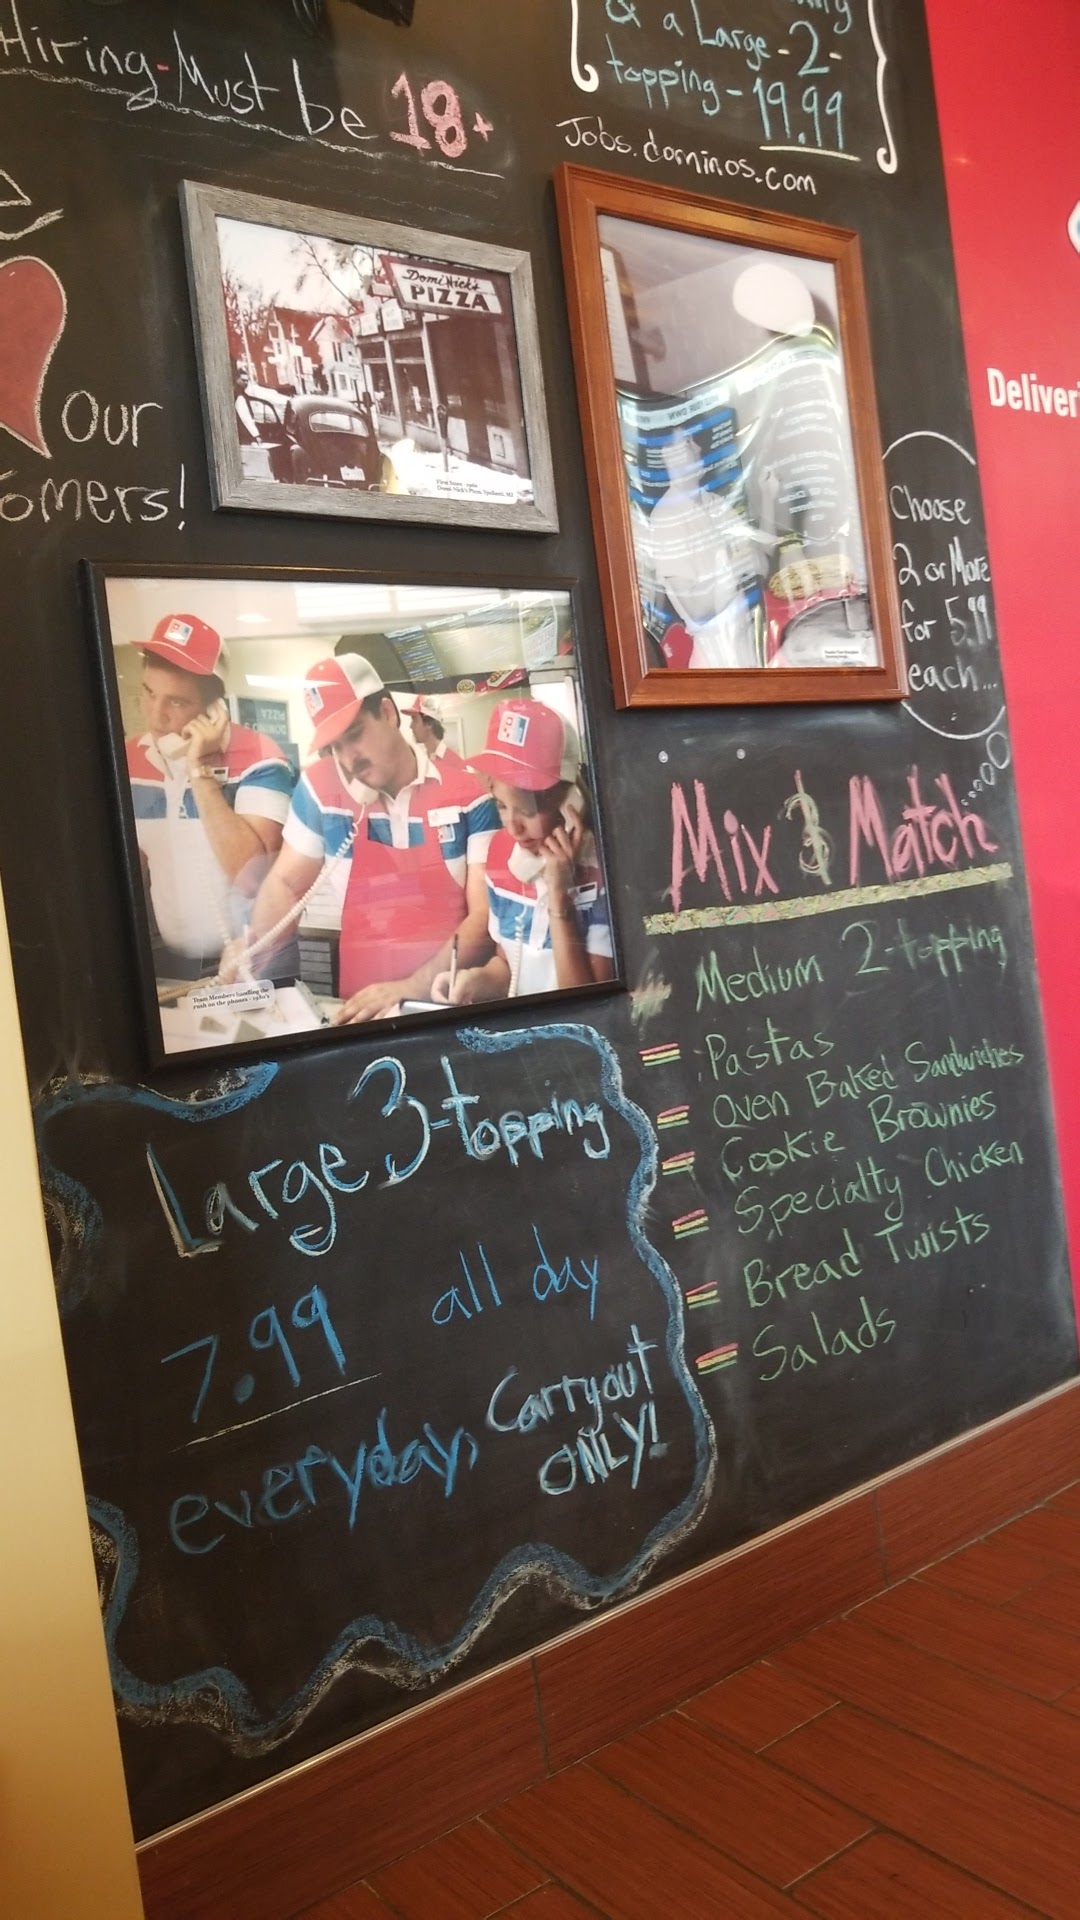 Hiring-Must be 18+
& a Large-2-
topping- 19.99
Jobs.dominos.com
Our
omers!
DomiNick's
PIZZA
First Store - 1960
Domi-Nick's Pizza, Ypsilanti, MI
Deliver
Choose
2 or More
for 5.99
each...
Team Members handling the
rush on the phones - 1980's
Mix & Match
Medium 2-topping
Pastas
Oven Baked Sandwiches
Cookie Brownies
Specialty Chicken
Bread Twists
Salads
Large 3-topping
7.99 all day
everyday, Carryout
ONLY!